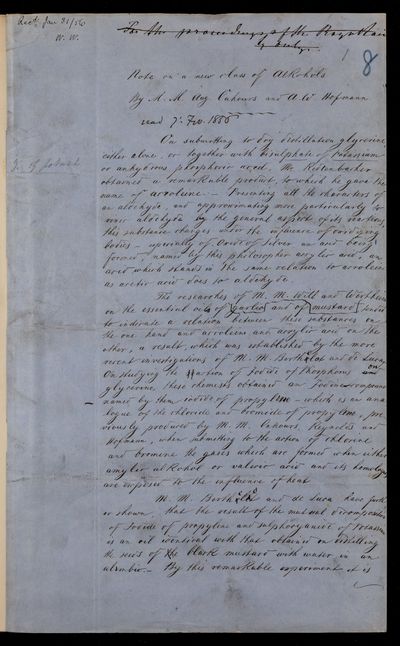 Rec.d Jan 31/56
W. W.
For the proceedings of the Royal Society.
1 8
Note on a new class of Alkohols
By M. M. Aug. Cahours and A. W. Hofmann
read 7. Feb. 1856
On submitting to dry distillation glycerine,
either alone, or together with bisulphate of Potassium
or anhydrous phosphoric acid, Mr. Redtenbacher
obtained a remarkable product, to which he gave the
name of acroleine. — Presenting all the characters of
an aldehyde, and approximating more particularly to
aldehyde by the general aspect of its reactions,
this substance changes under the influence of oxidizing
bodies — specially of Oxide of silver an acid being
formed, named by this philosopher acrylic acid, an
acid which stands in the same relation to acroleine
as acetic acid does to aldehyde.
The researches of M. M. Will and Wertheim
on the essential oils of garlic and of mustard tended
to indicate a relation between these substances on
the one hand and acroleine and acrylic acid on the
other, a result which was established by the more
recent investigations of M. M. Berthelot and de Luca.
On studying the action of Iodide of Phosphorus on
glycerine these chemists obtained an Iodine compound
named by them iodide of propylene — which is an ana-
logue of the chloride and bromide of propylene, pre-
viously produced by M. M. Cahours, Reynolds and
Hofmann, when submitting to the action of chlorine
and bromine the gases which are formed when either
amylic alkohol or valeric acid and its homologues
are exposed to the influence of heat
M. M. Berthelot and de Luca have furth-
er shown, that the result of the mutual decomposition
of Iodide of propylene and sulphocyanide of Potassium
is an oil identical with that obtained on distilling
the seeds of the black mustard with water in an
alembic. — By this remarkable experiment it is